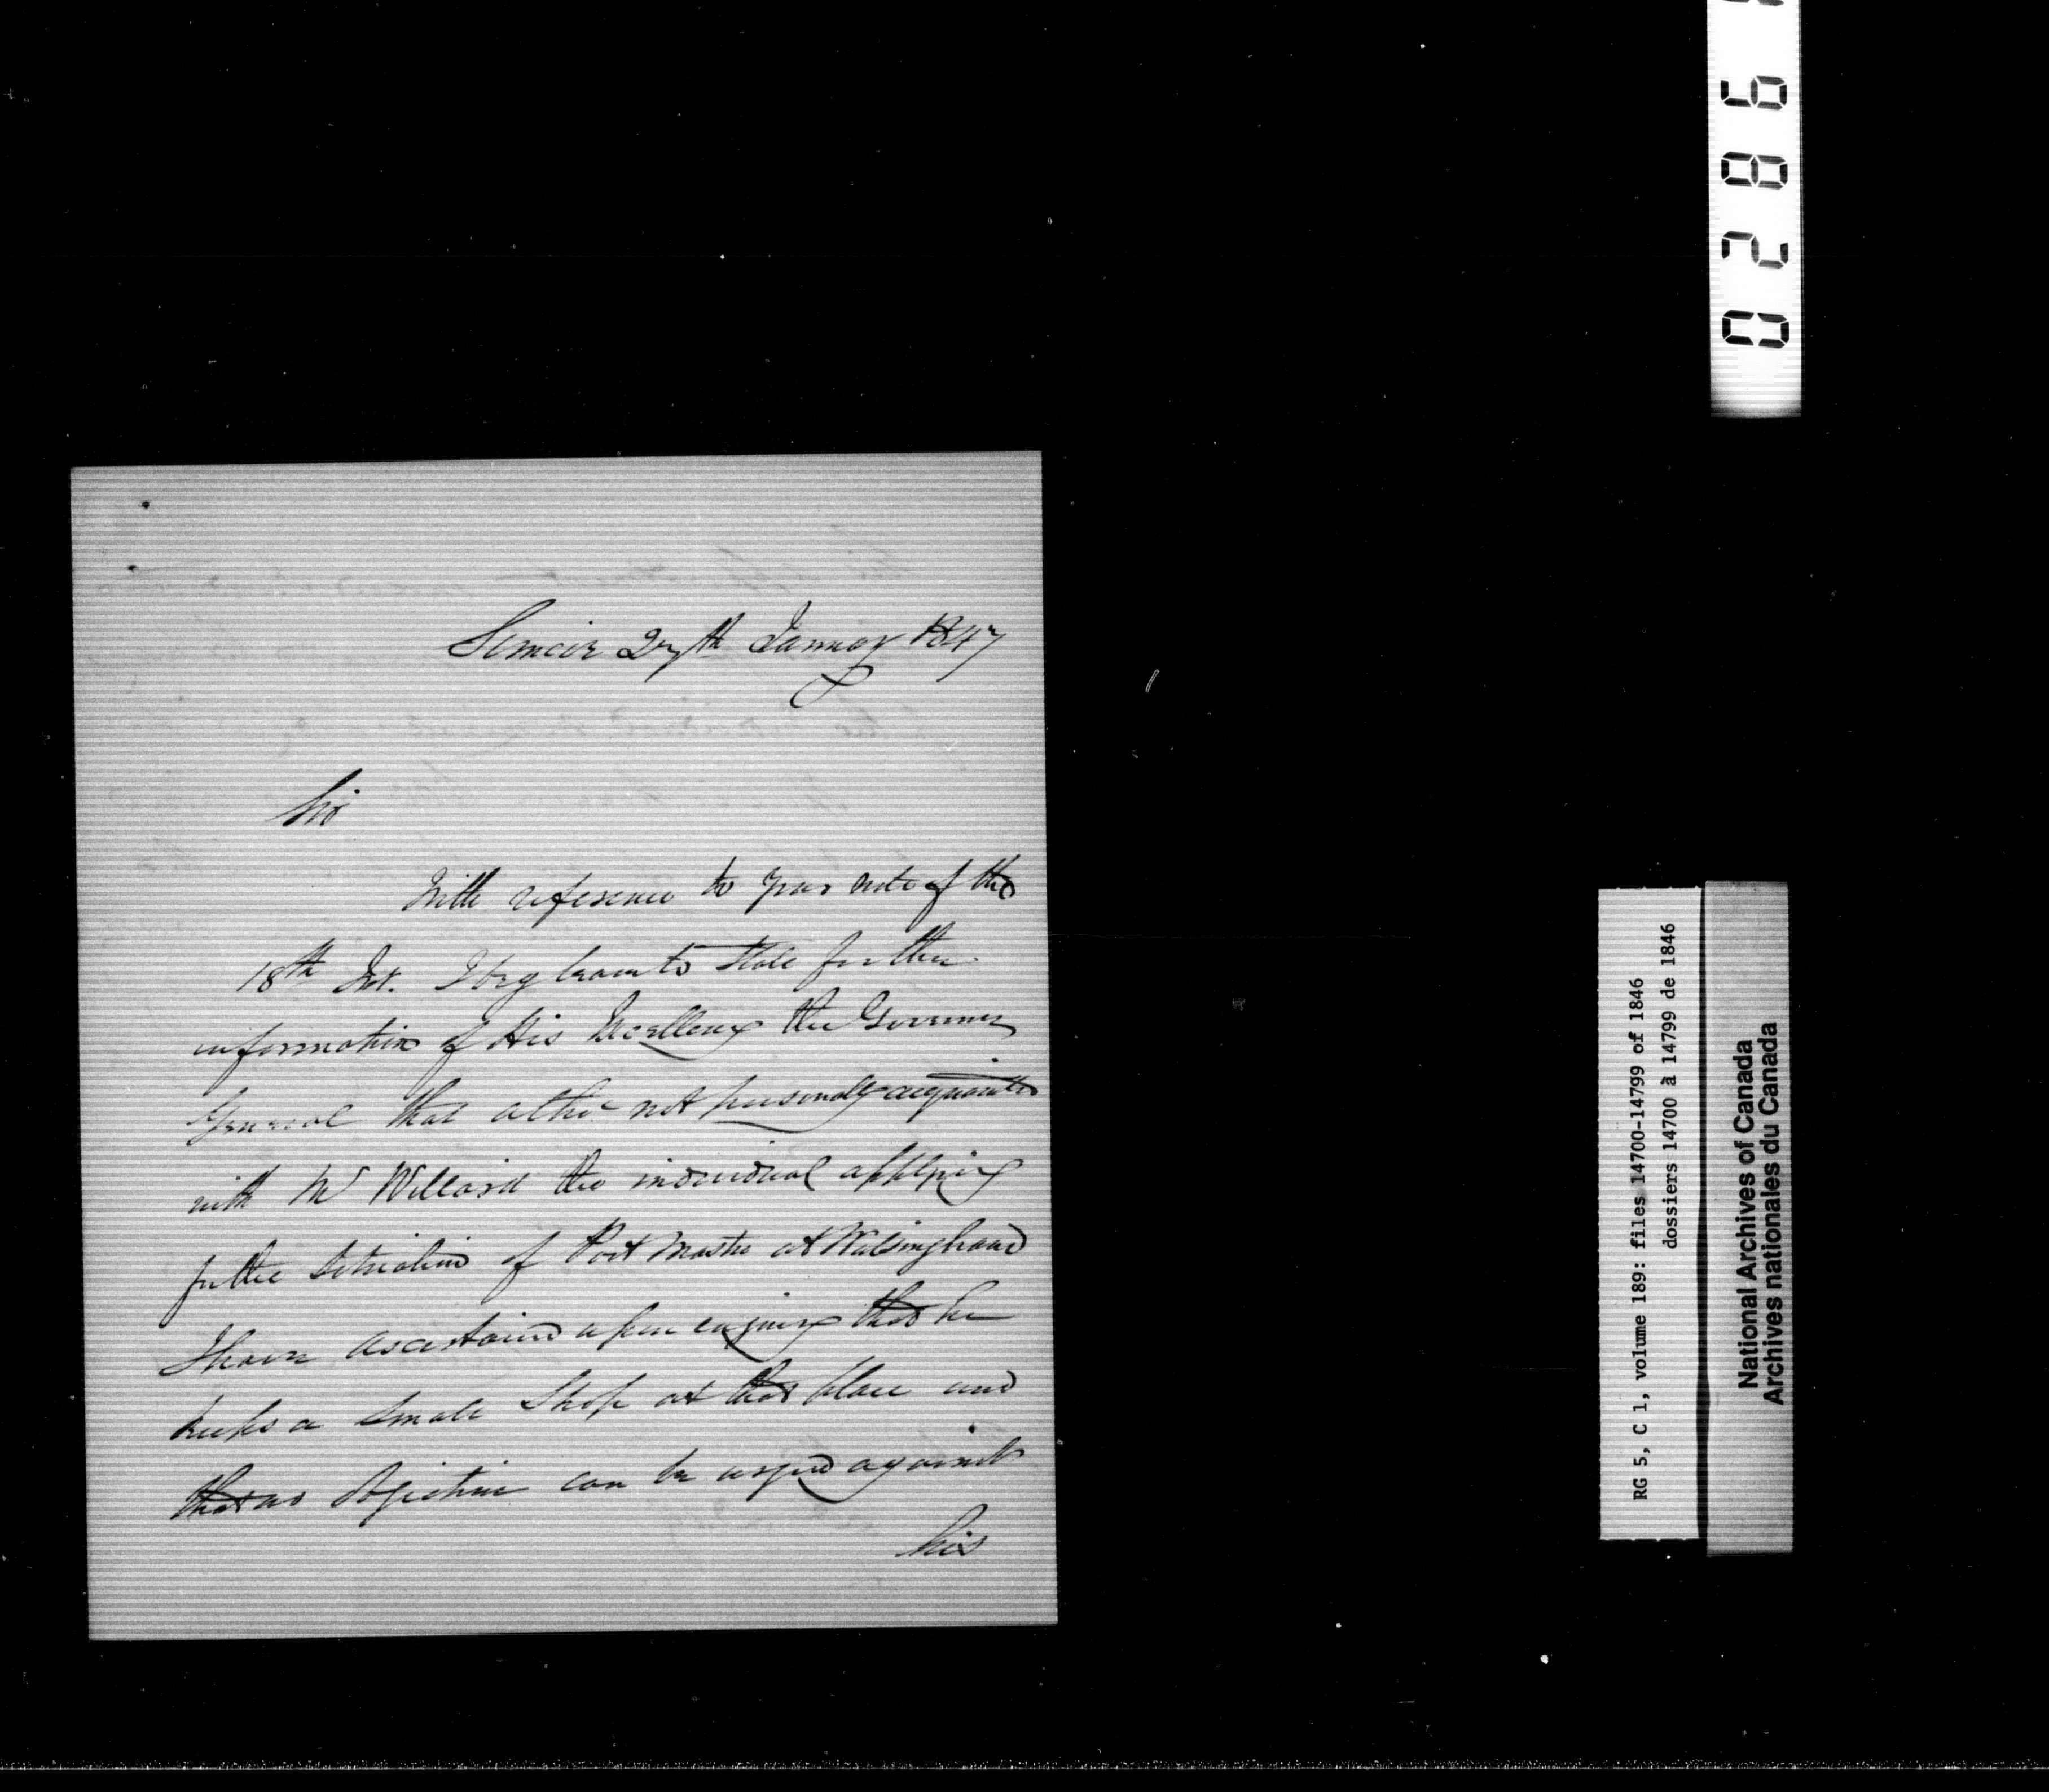 Simcoe 27th January 1847
Sir
With reference to your note of the
18th Inst. I beg leave to State for the
information of His Excellency the Governor
General that altho' not personally acquainted
with Mr Willard the individual applying
for the Situation of Post Master at Walsingham
I have ascertained upon enquiry that he
keeps a Small Shop at that place and
that no Objection can be urged against
his
0286
RG 5, C 1, volume 189: files 14700-14799 of 1846
dossiers 14700 à 14799 de 1846
National Archives of Canada
Archives nationales du Canada